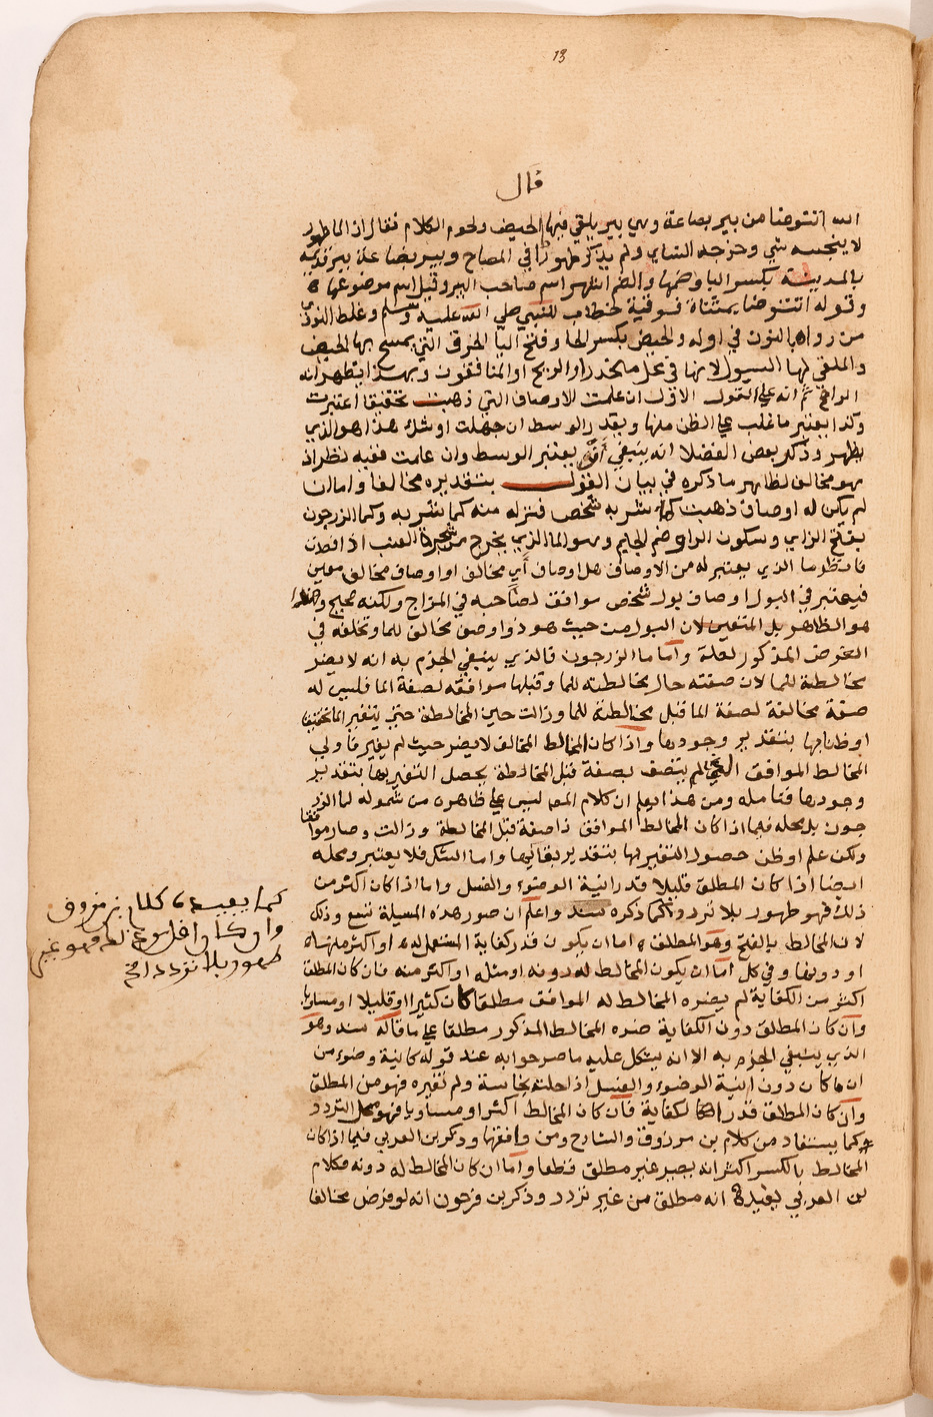 13
قال
الله انتوضا من بير بضاعة وهي بير يلقي فيها الحيض ولحوم الكلاب فقال ان الما طهور
لا ينجسه شي وخرجه النساي ولم يذكر طهورا في المصاح وبير بضاعة بير قديمة
بالمدينة بكسر البا وضمها والضم اشهر اسم صاحب البير وقيل اسم موضوعها
وقوله اتتوضا بمثناة فوقية خطاب للنبي صلي الله عليه وسلم وغلط النووي
من رواه بالنون في اوله والحيض بكسر الحا وفتح اليا الخرق التي يمسح بها الحيض
والملقي لها السيول لانها في محل منحدر او الريح او المنافقون وبهذا يظهر انه
الراجح ثم انه علي القول الاول ان علمت الاوصاف التي ذهبت تحقيقا اعتبرت
وكذا يعتبر ما غلب علي الظن منها ويقدر الوسط ان جهلت او شك هذا هو الذي
يظهر وذكر بعض الفضلا انه ينبغي ان يعتبر الوسط وان علمت ففيه نظر اذ
هو مخالف لظاهر ما ذكره في بيان القول بتقديره مخالفا واما ان
لم يكن له اوصاف ذهبت كما شربه شخص فنزله منه كما شربه وكما الزرجون
بفتح الزاي وسكون الرا وضم الجيم وهو الما الذي يخرج من شجرة العنب اذا قطعت
فانظر ما الذي يعتبر له من الاوصاف هل اوصاف اي مخالف او اوصاف مخالف معين
فيعتبر في البول اوصاف بول شخص موافق لصاحبه في المزاج ولكنه صحيح وهذا
هو الظاهر بل المتعين لان البول من حيث هو ذو اوصف مخالف للما وتخلفه في
الغرض المذكور لعلة واما ما الزرجون فالذي ينبغي الجزم به انه لا يضر
مخالطته للما لان صفته حال مخالطته للما وقبلها موافقة لصفة الما فليس له
صفة مخالفة لصفة الما قبل مخالطته للما وزالت حين المخالطة حتي يتغير الما تحقيقا
او ظنا بها بتقدير وجودها واذا كان المخالط المخالف لا يضر حيث لم يغير فاولي
المخالط الموافق الذي لم يتصف بصفة قبل المخالطة يحصل التغير بها بتقدير
وجودها فتامله ومن هذا يعلم ان كلام المص ليس علي ظاهره من شموله لما الزر
جون بل محله فيما اذا كان المخالط الموافق ذا صفة قبل المخالطة وزالت وصار موافقا
ولكن علم او ظن حصول التغير بها بتقدير بقائها واما الشك فلا يعتبر ومحله
ايضا اذا كان المطلق قليلا قدر انية الوضوء والغسل واما اذا كان اكثر من
ذلك فهو طهور بلا تردد كما ذكره سند واعلم ان صور هذه المسيلة تسع وذلك
لان المخالط بالفتح وهو المطلق اما ان يكون قدر كفاية المستعمل له او اكثر منها
او دونها وفي كل اما ان يكون المخالط له دونه او مثله او اكثر منه فان كان المطلق
اكثر من الكفاية لم يضره المخالط له الموافق مطلقا كان كثيرا او قليلا او مساويا
وان كان المطلق دون الكفاية ضره المخالط المذكور مطلقا علي ما قاله سند وهو
الذي ينبغي الجزم به الا انه يشكل عليه ما صرحوا به عند قوله كانية وضوء من
ان ما كان دون انية الوضوء والغسل اذا حلته نجاسة ولم تغيره فهو من المطلق
وان كان المطلق قدر الكفاية فان كان المخالط اكثر او مساويا فهو محل التردد
وكما يستفاد من كلام بن مرزوق والشارح ومن وافقها وذكر بن العربي فيما اذا كان
المخالط بالكسر اكثر انه يصير غير مطلق قطعا واما ان كان المخالط له دونه فكلام
بن العربي يفيد انه مطلق من غير تردد وذكر بن فرحون انه لو فرض مخالفا
كما يفيده كلام بن مرزوق
طهور بلا تردد